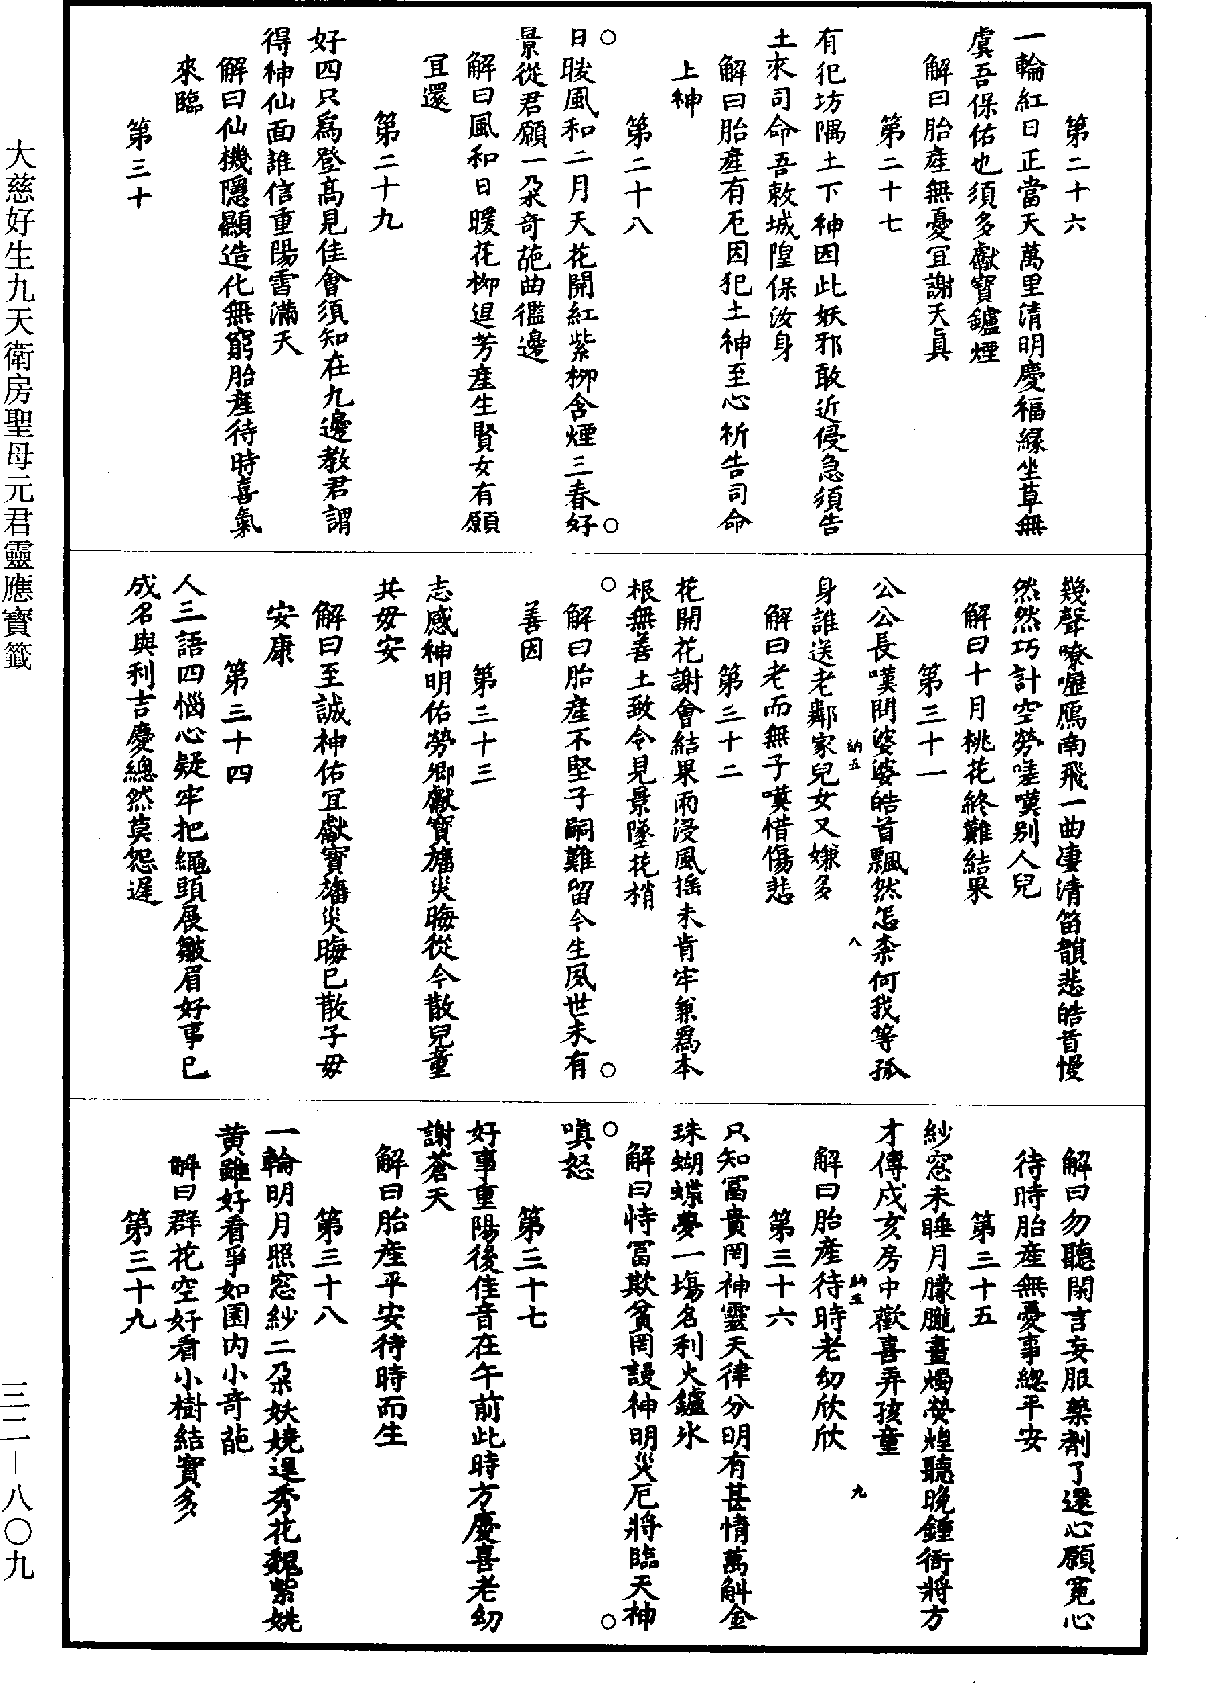 第二十六
一輪紅日正當天萬里清明慶福緣坐草無
虞吾保佑也須多獻寶鑪煙
解曰胎產無憂宜謝天真
第二十七
有犯坊隅土下神因此妖邪敢近侵急須告
土求司命吾敕城隍保汝身
解曰胎產有厄因犯土神至心祈告司命
上神
第二十八
日暖風和二月天花開紅紫柳含煙三春好
景從君願一朵奇葩曲檻邊
解曰風和日暖花柳逞芳產生賢女有願
宜還
第二十九
好四只為登高見佳會須知在九邊教君謂
得神仙面誰信重陽雪滿天
解曰仙機隱顯造化無窮胎產待時喜氣
來臨
第三十
幾聲嘹嚦鴈南飛一曲凄清笛韻悲皓首慢
然然巧計空勞嗟嘆別人兒
解曰十月桃花終難結果
第三十一
公公長嘆問婆婆皓首飄然怎柰何我等孤
身誰送老鄰家兒女又嫌多
解曰老而無子嘆惜傷悲
第三十二
花開花謝會結果雨浸風搖未肯牢兼為本
根無善土致令見景墜花梢
解曰胎產不堅子嗣難留今生夙世未有
善因
第三十三
志感神明佑勞卿獻寶旛災晦從今散兒童
共母安
解曰至誠神佑宜獻寶旛災晦已散子母
安康
第三十四
人三語四惱心疑牢把繩頭展皺眉好事已
成名與利吉慶總然莫怨遲
解曰勿聽閑言妄服藥劑了還心願寬心
待時胎產無憂事總平安
第三十五
紗窓未睡月朦朧畫燭熒煌聽晚鍾衙將方
才傳戌亥房中歡喜弄孩童
解曰胎產待時老幼欣欣
第三十六
只知冨貴罔神靈天律分明有甚情萬斛金
珠蝴蝶夢一塲名利火鑪氷
解曰恃冨欺貧罔謾神明災厄將臨天神
嗔怒
第三十七
好事重陽後佳音在午前此時方慶喜老幼
謝蒼天
解曰胎產平安待時而生
第三十八
一輪明月照窓紗二朵妖嬈逞秀花魏紫姚
黃雖好看爭如園內小奇葩
解曰群花空好看小樹結實多
第三十九
訥五
八
訥五
九
大慈好生九天衛房聖母元君靈應寶籤
三二－八〇九